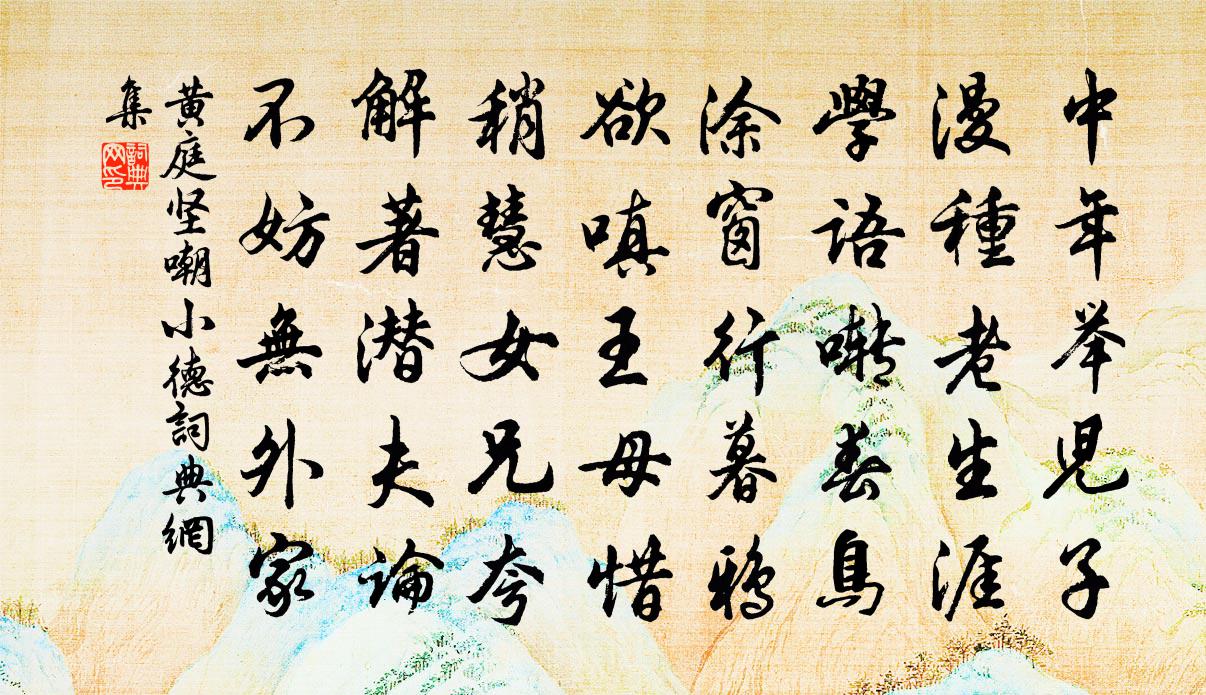 中年举兒子
漫種老生涯
學語囀春鳥
涂窗行暮鴉
欲嗔王母惜
稍慧女兄夸
解著潜夫論
不妨無外家
黄庭坚嘲小德詞典網
集
詞典
网印